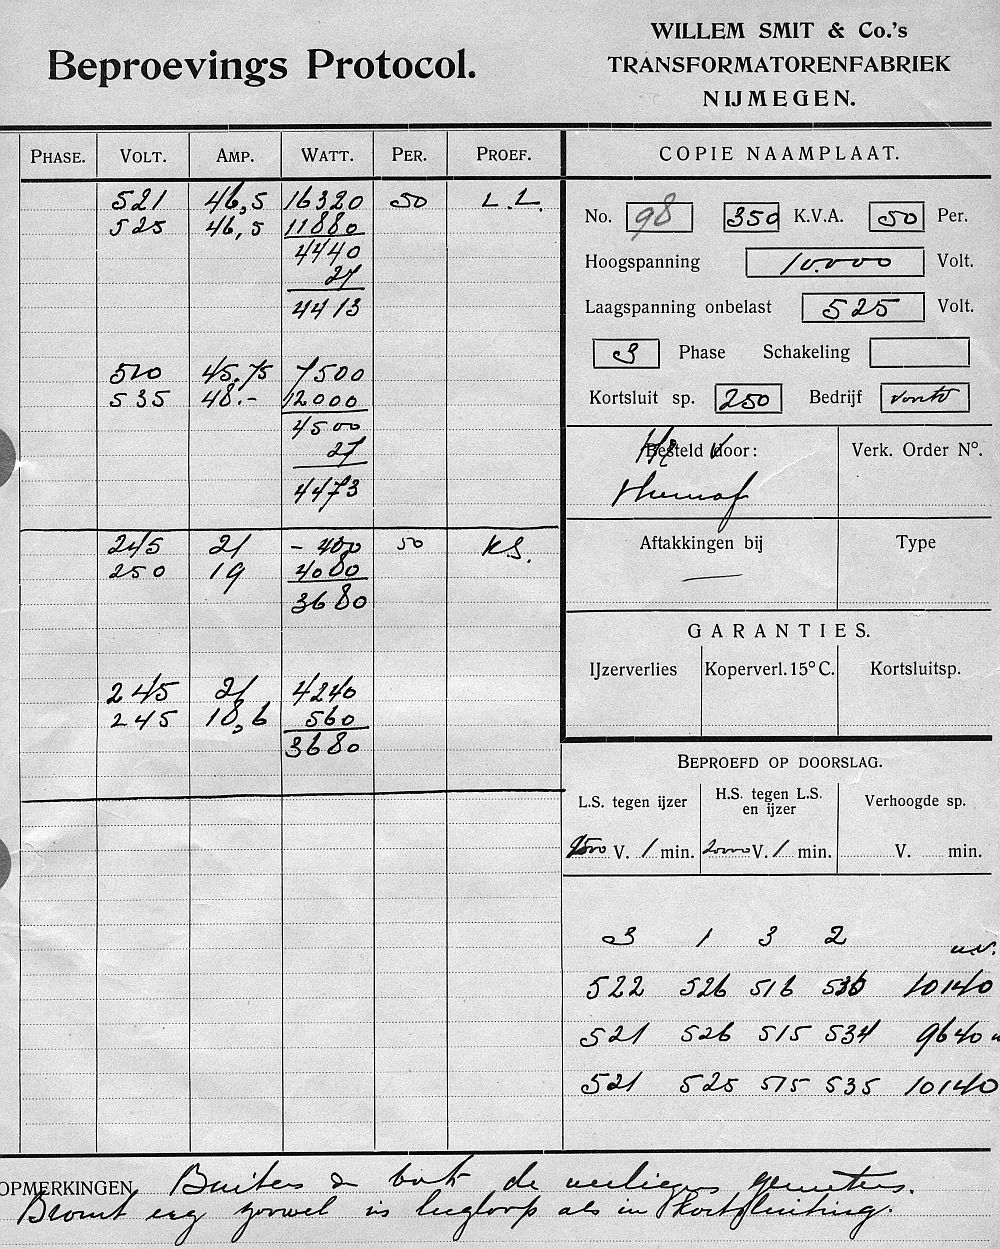 Beproevings Protocol.
WILLEM SMIT & Co.'s
TRANSFORMATORENFABRIEK
NIJMEGEN.
PHASE. VOLT. AMP. WATT. PER. PROEF.
521 46,5 16320 50 L.L.
525 46,5 11880
4440
27
4413
510 45.75 7500
535 48.- 12000
4500
27
4473
245 21 - 400 50 K.S.
250 19 4080
3680
245 21 4240
245 18,6 560
3680
COPIE NAAMPLAAT.
No. 98 350 K.V.A. 50 Per.
Hoogspanning 10.000 Volt.
Laagspanning onbelast 525 Volt.
3 Phase Schakeling
Kortsluit sp. 250 Bedrijf
Besteld door: Verk. Order No.
Aftakkingen bij Type
—
GARANTIES.
IJzerverlies Koperverl. 15° C. Kortsluitsp.
BEPROEFD OP DOORSLAG.
L.S. tegen ijzer H.S. tegen L.S. en ijzer Verhoogde sp.
V. 1 min. 20000 V. 1 min. V. min.
3 1 3 2
522 526 516 536 10140
521 526 515 534 9640
521 525 515 535 10140
OPMERKINGEN Buiten de bak de gemeten.
Bromt erg zoowel in leegloop als in kortsluiting.